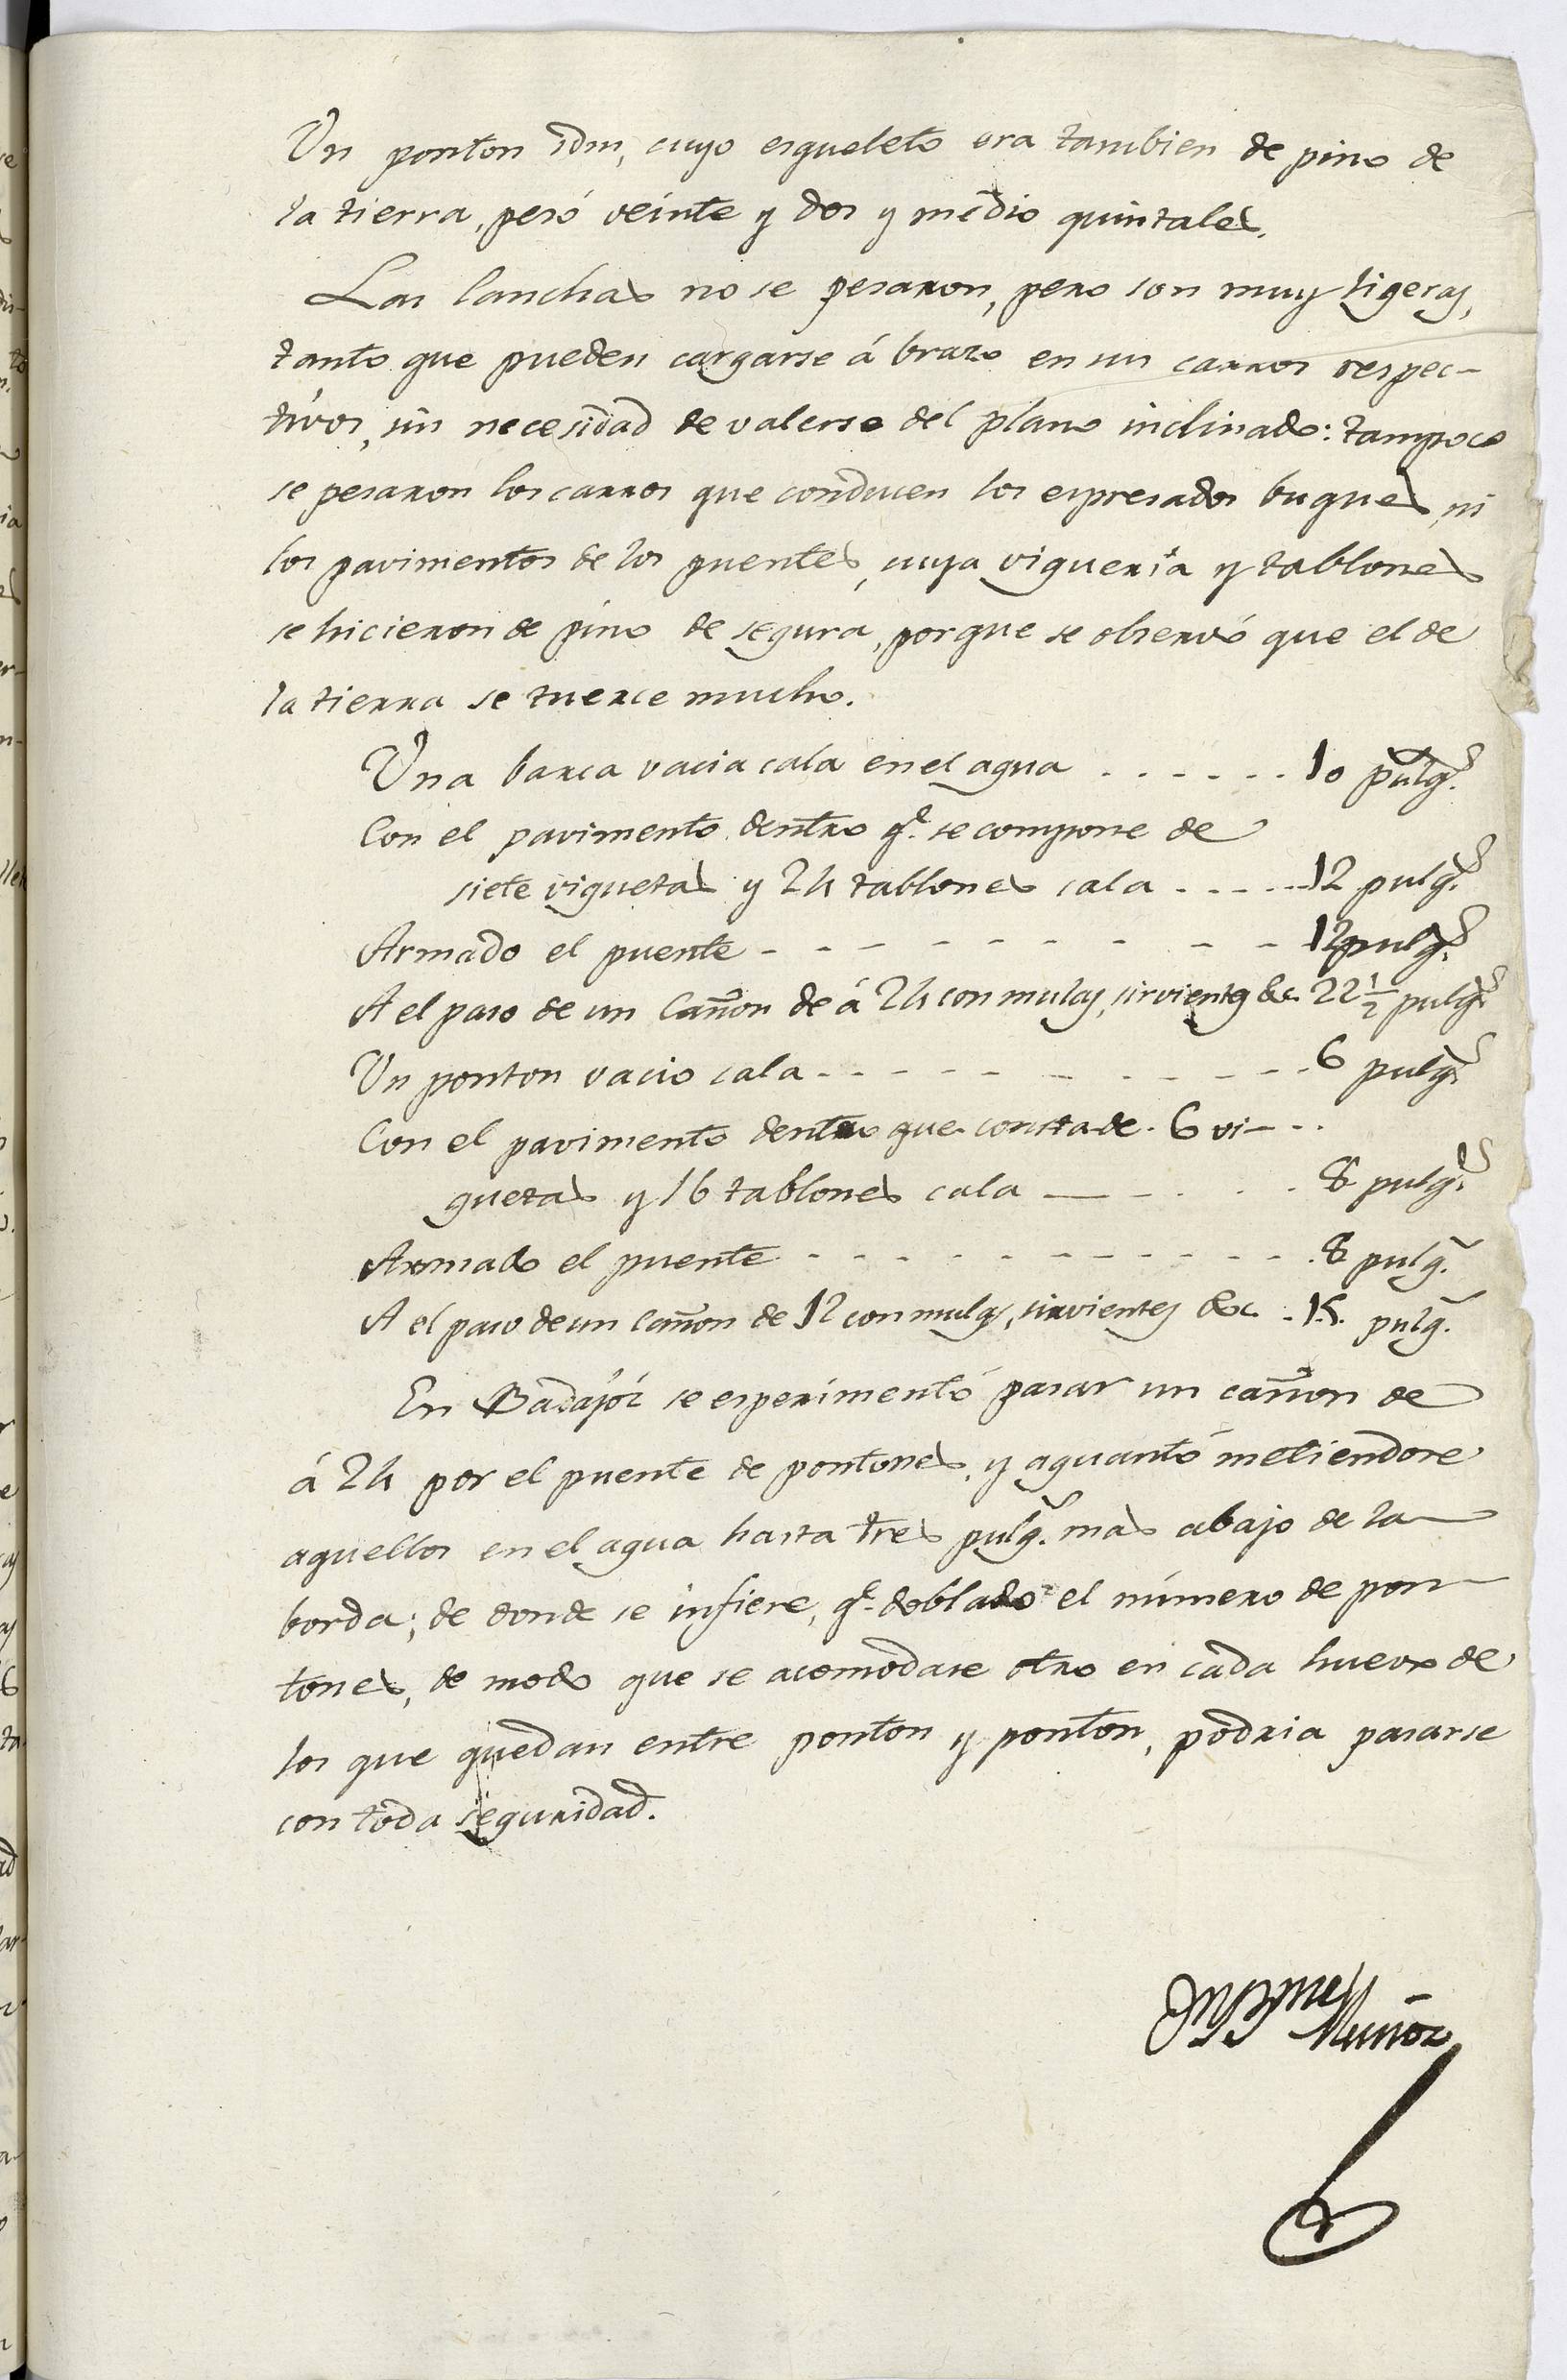 Un ponton idm, cuyo esqueleto era tambien de pino de
la tierra, pesó veinte y dos y medio quintales.
Las lanchas no se pesaron, pero son muy ligeras,
tanto que pueden cargarse á brazo en sus carros respec-
tivos, sin necesidad de valerse del plano inclinado: tampoco
se pesaron los carros que conducen los espresados buques, ni
los pavimentos de los puentes, cuya vigueria y tablones
se hicieron de pino de segura, porque se observó que el de
la tierra se tuerce mucho.
Una barca vacia cala en el agua . . . . . . 10 pulg.s
Con el pavimento dentro q.e se compone de
siete viguetas y 24 tablones cala . . . . . 12 pulg.s
Armado el puente - - - - - - - - - 12 pulg.s
A el paso de un Cañon de á 24 con mulas, sirvientes &c. 22 1/2 pulg.s
Un ponton vacio cala - - - - - - - - - 6 pulg.s
Con el pavimento dentro que consta de 6 vi- . .
guetas y 16 tablones cala - - . . . . 8 pulg.s
Armado el puente - - - - - - - - - 8 pulg.
A el paso de un Cañon de 12 con mulas, sirvientes &c . 15. pulg.
En Badajóz se esperimentó pasar un cañon de
á 24 por el puente de pontones, y aguantó metiendose
aquellos en el agua hasta tres pulg.s mas abajo de la
borda; de donde se infiere, q.e doblado el número de pon-
tones, de modo que se acomodase otro en cada hueco de
los que quedan entre ponton y ponton, podria pasarse
con toda seguridad.
Muñoz